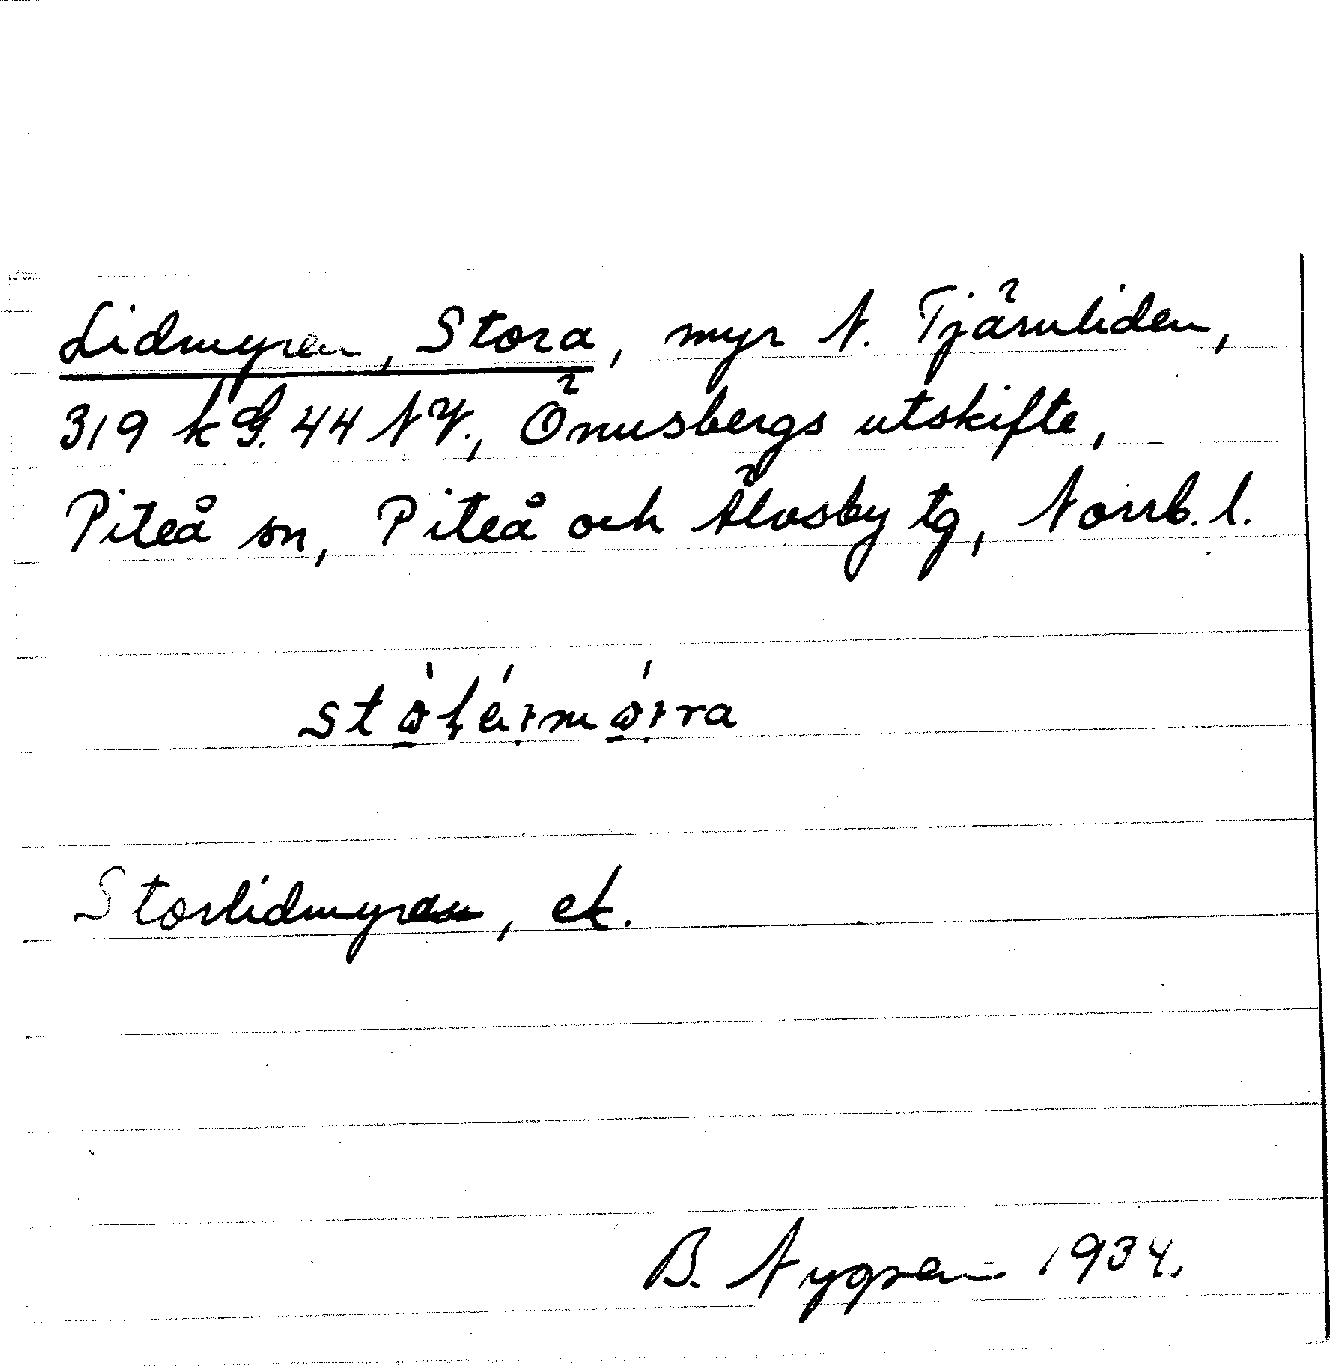 Lidmyren, Stora, myr N. Tjärnliden,
319 k G. 44 NV., Önusbergs utskifte,
Piteå sn, Piteå och Älvsby tg, Norrb. l.
Storlidmyren, ek.
B. Nygren 1934.